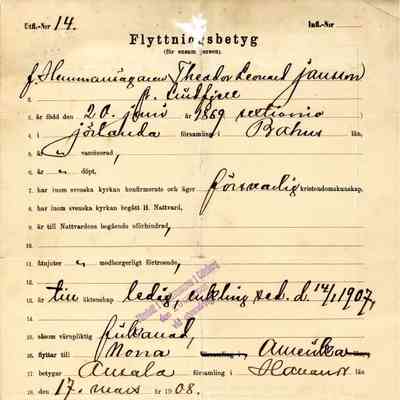 Utfl.-N:r 14. Infl.-N:r
Flyttningsbetyg
(för ensam person).
f. Hemmansägaren Theodor Leonard Jansson
2.
3. är född den 20. juni år 1869 sextionio
4. i Jörlanda församling i Bahus län,
5. är " vaccinerad,
6. är " döpt,
7. har inom svenska kyrkan konfirmerats och äger försvarlig kristendomskunskap,
8. har inom svenska kyrkan begått H. Nattvard,
9. är till Nattvardens begående oförhindrad,
10.
11. åtnjuter " medborgerligt förtroende,
12.
13. är till äktenskap ledig, enkling sed. d. 14/1 1907,
14.
15. såsom värnpliktig
16. flyttar till Norra församling i Amerika
17. betygar Onsala i Halland län
18. den 17. mars 1908.